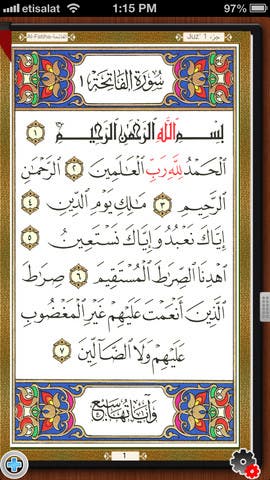 etisalat 1:15 PM 97%
Al-Fatiha-الفاتحة Juz' 1 جزء
سُورَةُ الفَاتِحَةِ ١
بِسْمِ ٱللَّهِ ٱلرَّحْمَٰنِ ٱلرَّحِيمِ ١
ٱلْحَمْدُ لِلَّهِ رَبِّ ٱلْعَٰلَمِينَ ٢ ٱلرَّحْمَٰنِ
ٱلرَّحِيمِ ٣ مَٰلِكِ يَوْمِ ٱلدِّينِ ٤
إِيَّاكَ نَعْبُدُ وَإِيَّاكَ نَسْتَعِينُ ٥
ٱهْدِنَا ٱلصِّرَٰطَ ٱلْمُسْتَقِيمَ ٦ صِرَٰطَ
ٱلَّذِينَ أَنْعَمْتَ عَلَيْهِمْ غَيْرِ ٱلْمَغْضُوبِ
عَلَيْهِمْ وَلَا ٱلضَّآلِّينَ ٧
وَآيَاتُهَا سَبْعٌ
1